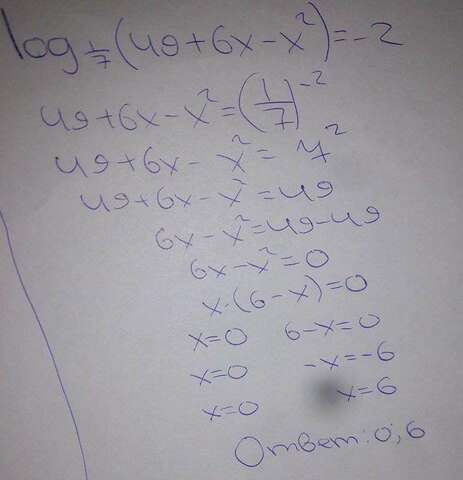 log_{1/7}(49+6x-x²)=-2
49+6x-x²=(1/7)^{-2}
49+6x-x²=7²
49+6x-x²=49
6x-x²=49-49
6x-x²=0
x·(6-x)=0
x=0 6-x=0
x=0 -x=-6
x=0 x=6
Ответ: 0; 6